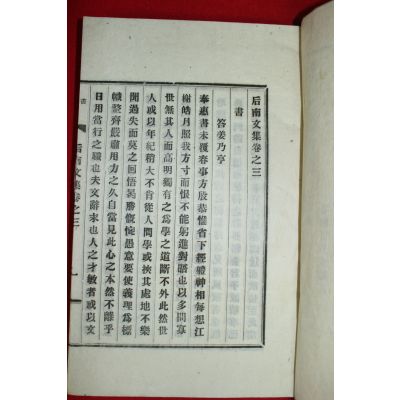 后南文集卷之三
書
答姜乃亨
奉惠書未覆春事方殷恭惟省下經體神相每想江
榭皓月照我方寸而恨不能躬進對晤也以多問寡
世無其人而高明獨有之爲學之道諒不外此然世
人或以年紀稍大不肯從人問學或挾其處地不樂
聞過失而莫之回悟曷勝慨惋愚意要使義理爲標
幟整齊嚴肅用力之久自當見此心之本然不離乎
日用當行之職也夫文辭末也人之才敏者或以文
書
后南文集卷之三
一